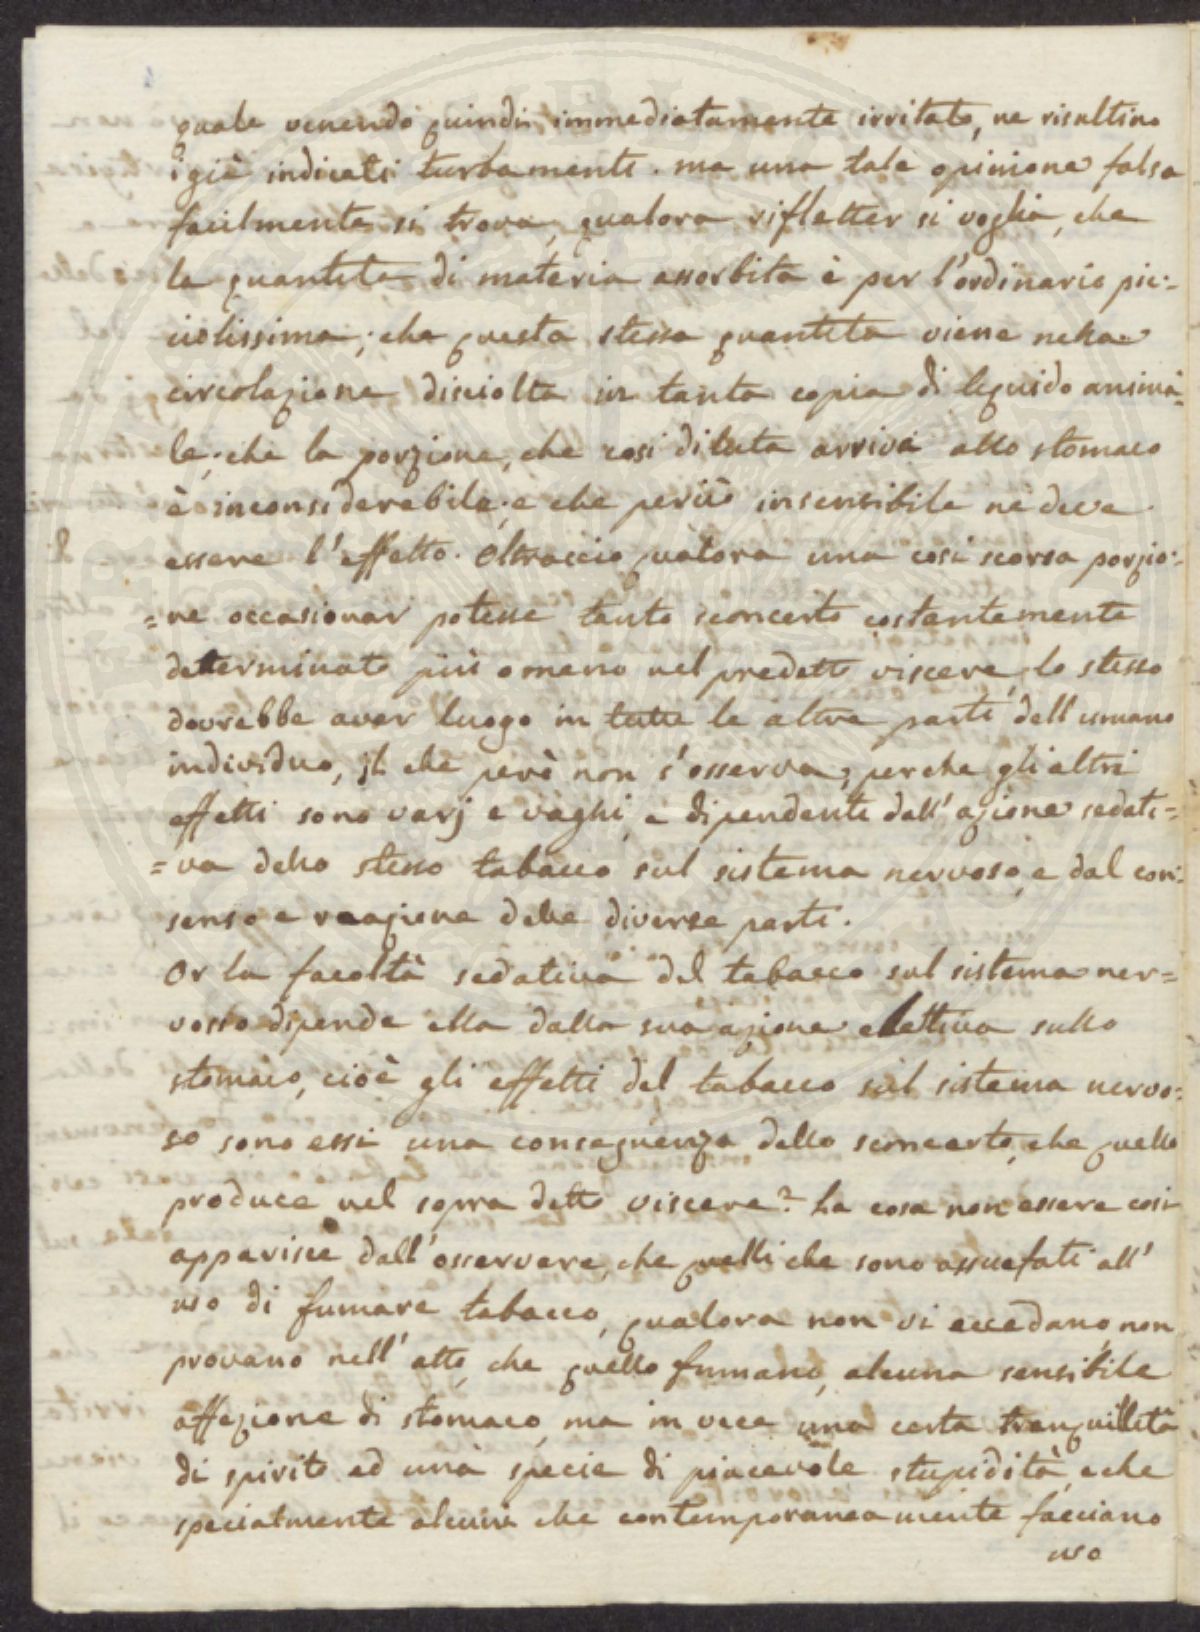 quale venendo quindi immediatamente irritato, ne risultino
i già indicati turbamenti. ma una tale opinione falsa
facilmente si trova, qualora rifletter si voglia, che
la quantita di materia assorbita è per l'ordinario pic:
ciolissima; che questa stessa quantita viene nella
circolazione disciolta in tanta copia di liquido anima=
le; che la porzione, che così diluta arriva allo stomaco
è inconsiderabile; e che perciò insensibile ne deve
essere l'effetto. Oltraccio qualora una così scarsa porzio:
=ne occasionar potesse tanto sconcerto costantemente
determinato più o meno nel predetto viscere, lo stesso
dovrebbe aver luogo in tutte le altre parti dell'umano
individuo, il che però non s'osserva, perche gli altri
effetti sono varj e vaghi, e dipendenti dall'azione sedati=
=va dello stesso tabacco sul sistema nervoso, e dal con:
senso e reazione delle diverse parti.
Or la facoltà sedativa del tabacco sul sistema ner=
voso dipende ella dalla sua azione elettiva sullo
stomaco, cioè gli effetti del tabacco sul sistema nervo:
so sono essi una conseguenza dello sconcerto, che quello
produce nel sopra detto viscere? La cosa non essere così
apparisce dall'osservare, che quelli che sono assuefati all'
uso di fumare tabacco, qualora non vi eccedano, non
provano nell'atto, che quello fumano, alcuna sensibile
affezione di stomaco, ma in vece una certa tranquillità
di spirito ed una specie di piacevole stupidità, e che
specialmente alcuni che contemporaneamente facciano
uso